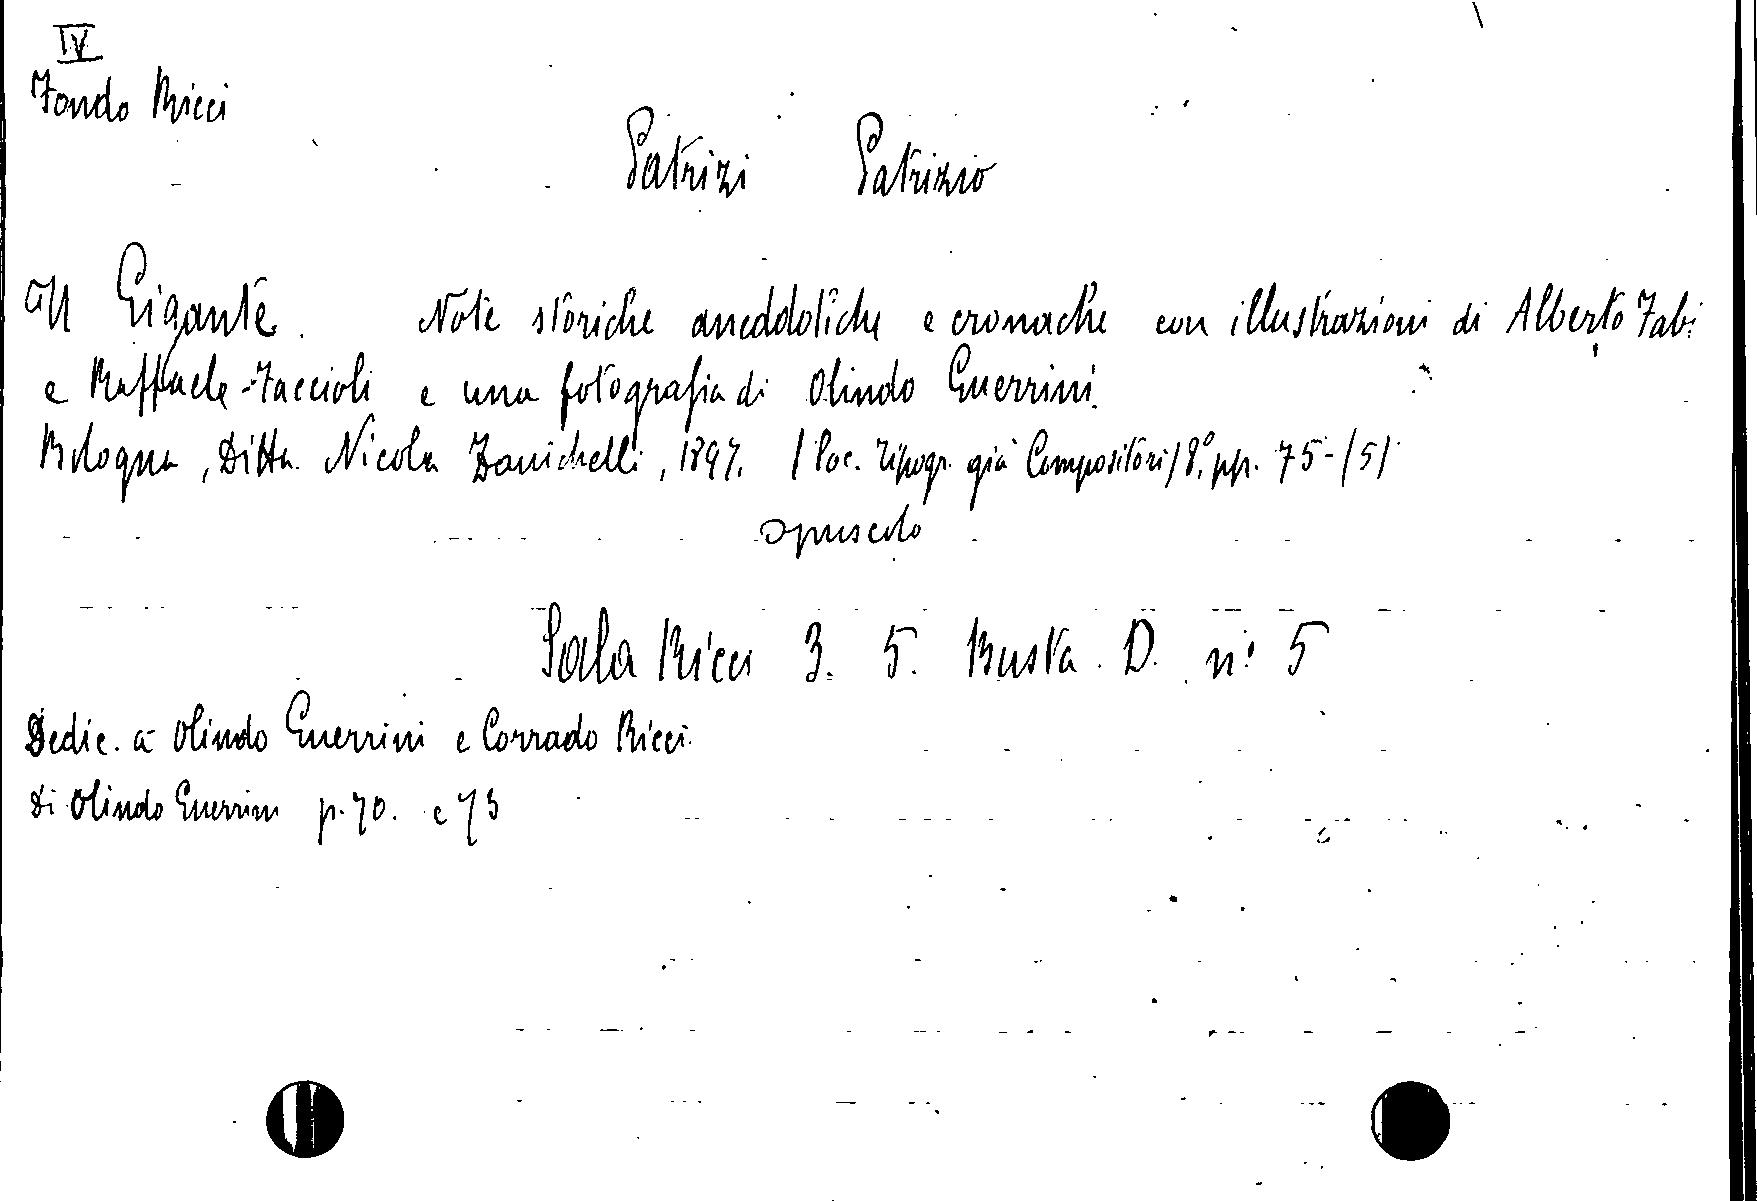 IV
Fondo Ricci
Patrizi Patrizio
Il Gigante. Note storiche aneddotiche e cronache con illustrazioni di Alberto Fabi
e Raffaele Faccioli e una fotografia di Olindo Guerrini.
Bologna, Ditta Nicola Zanichelli, 1897. (Soc. Tipogr. già Compositori) 8°, pp. 75-(5)
opuscolo
Sala Ricci 3. 5. Busta D. n° 5
Dedic. a Olindo Guerrini e Corrado Ricci.
Di Olindo Guerrini p. 70. e 73